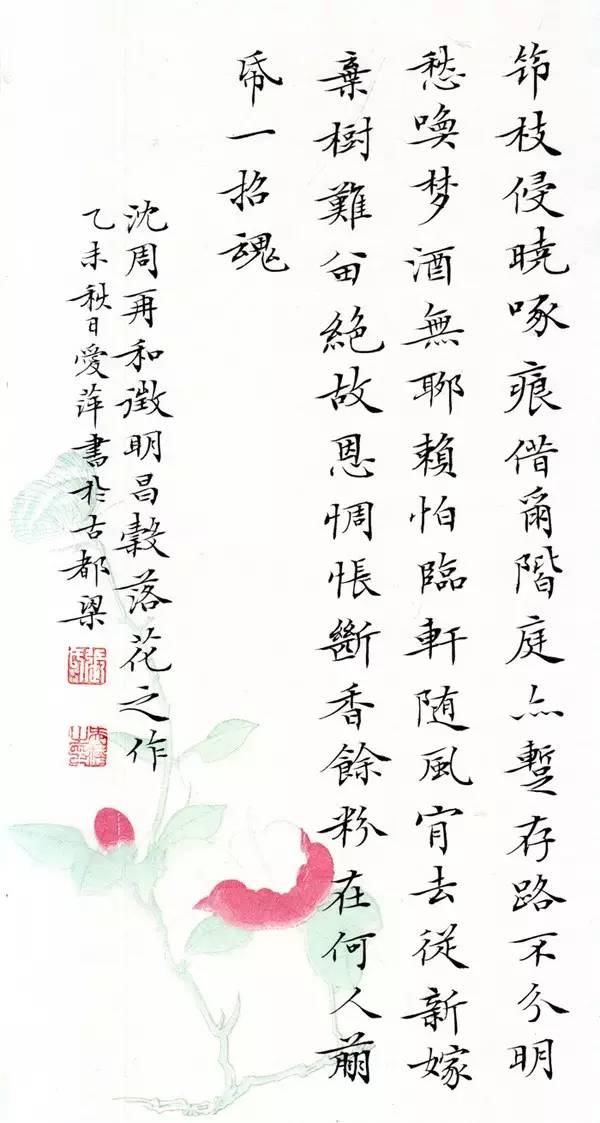 枝侵曉啄痕借爾階庭亦暫存路不分明
愁喚梦酒無聊賴怕臨軒随風肯去從新嫁
棄樹難畄絕故恩惆悵斷香餘粉在何人剪
帋一招魂
沈周再和徵明昌穀落花之作
乙未秋日愛萍書於古都梁